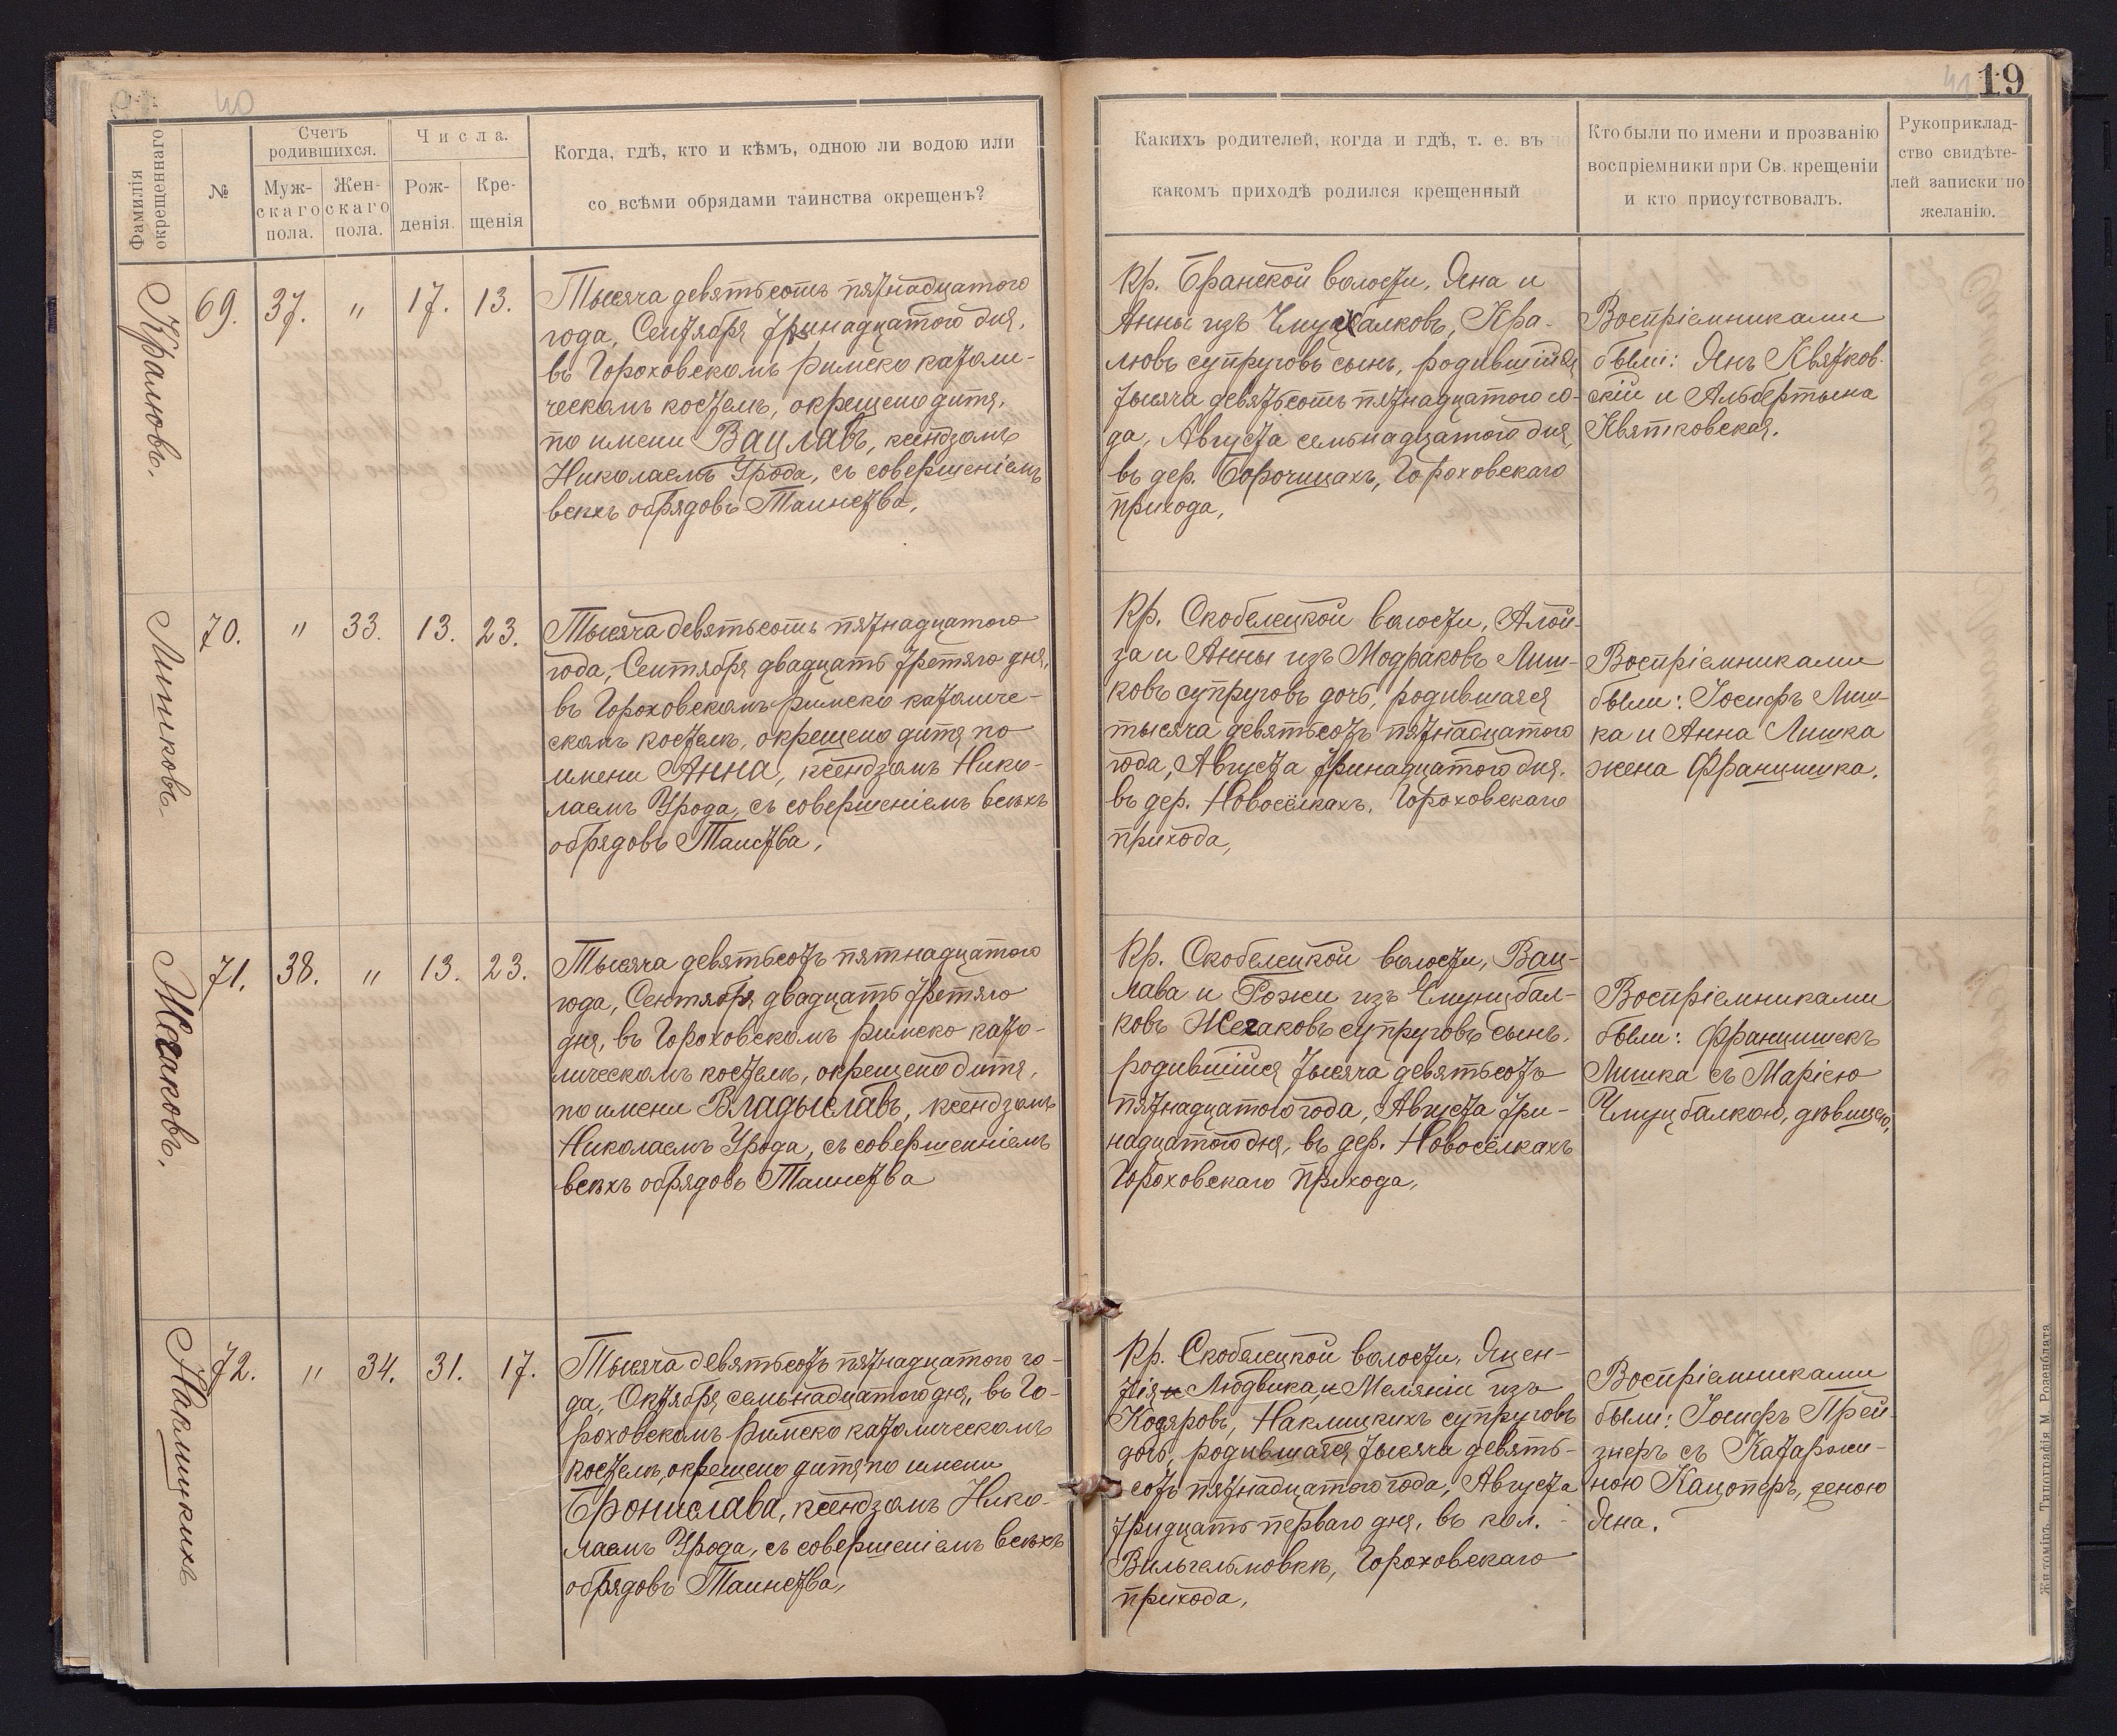 40
41 19
Фамилія
окрещеннаго
№
Счетъ
родившихся.
Муж-
скаго
пола.
Жен-
скаго
пола.
Числа.
Рож-
денія.
Кре-
щенія
Когда, гдѣ, кто и кѣмъ, одною ли водою или
со всѣми обрядами таинства окрещенъ?
Какихъ родителей, когда и гдѣ, т. е. въ
какомъ приходѣ родился крещенный
Кто были по имени и прозванію
воспріемники при Св. крещеніи
и кто присутствовалъ.
Рукоприклад-
ство свидѣте-
лей записки по
желанію.
Кралювъ.
69. 37. " 17. 13.
Тысяча девятьсотъ пятнадцатого
года, Сентября тринадцатого дня,
въ Гороховскомъ римско католи-
ческомъ костелѣ, окрещено дитя,
по имени Вацлавъ, ксендзомъ
Николаемъ Урода, съ совершеніемъ
всѣхъ обрядовъ Таинства,
Кр. Бранской волости, Яна и
Анны изъ Кра-
лювъ супруговъ сынъ, родившійся
тысяча девятьсотъ пятнадцатого го-
да, Августа семьнадцатого дня,
въ дер. Борочицахъ, Гороховскаго
прихода,
Воспріемниками
были: Янъ Квятков-
скій и Альбертына
Квятковская.
Лишковъ
70. " 33. 13. 23.
Тысяча девятьсотъ пятнадцатого
года, Сентября двадцать третяго дня,
въ Гороховскомъ римско католиче-
скомъ костелѣ, окрещено дитя по
имени Анна, ксендзомъ Нико-
лаемъ Урода, съ совершеніемъ всѣхъ
обрядовъ Таиства,
Кр. Скобелецкой волости, Алой-
за и Анны изъ Модраковъ Лиш-
ковъ супруговъ дочь, родившаяся
тысяча девятьсотъ пятнадцатого
года, Августа тринадцатого дня,
въ дер. Новосёлкахъ, Гороховскаго
прихода,
Воспріемниками
были: Іосифъ Лиш-
ка и Анна Лишка
жена Францишка.
71. 38. " 13. 23.
Тысяча девятьсотъ пятнадцатого
года, Сентября двадцать третяго
дня, въ Гороховскомъ римско като-
лическомъ костелѣ, окрещено дитя,
по имени Владыславъ, ксендзомъ
Николаемъ Урода, съ совершенніемъ
всѣхъ обрядовъ Таинства
Кр. Скобелецкой волости, Вац-
лава и Рожи изъ
супруговъ сынъ,
родившійся тысяча девятьсотъ
пятнадцатого года, Августа три-
надцатого дня, въ дер. Новосёлкахъ
Гороховскаго прихода,
Воспріемниками
были: Францишекъ
Лишка съ Маріею
Чмуцбалкою, дѣвицею,
Наклицкихъ
72. " 34. 31. 17.
Тысяча девятьсотъ пятнадцатого го-
да, Октября семьнадцатого дня, въ Го-
роховскомъ римско католическомъ
костелѣ, окрещено дитя по имени
Бронислава, ксендзомъ Нико-
лаемъ Урода, съ совершеніемъ всѣхъ
обрядовъ Таинства,
Кр. Скобелецкой волости, Яцен-
тія и Людвика, и Меляніи изъ
Наклицкихъ супруговъ
дочь, родившаяся тысяча девять-
сотъ пятнадцатого года, Августа
тридцать перваго дня, въ кол.
Вильгельмовкѣ, Гороховскаго
прихода,
Воспріемниками
были: Іосифъ Прей-
знеръ съ Катаржи-
ною Кацоперъ, женою
Яна.
Житоміръ. Типографія М. Розенблата